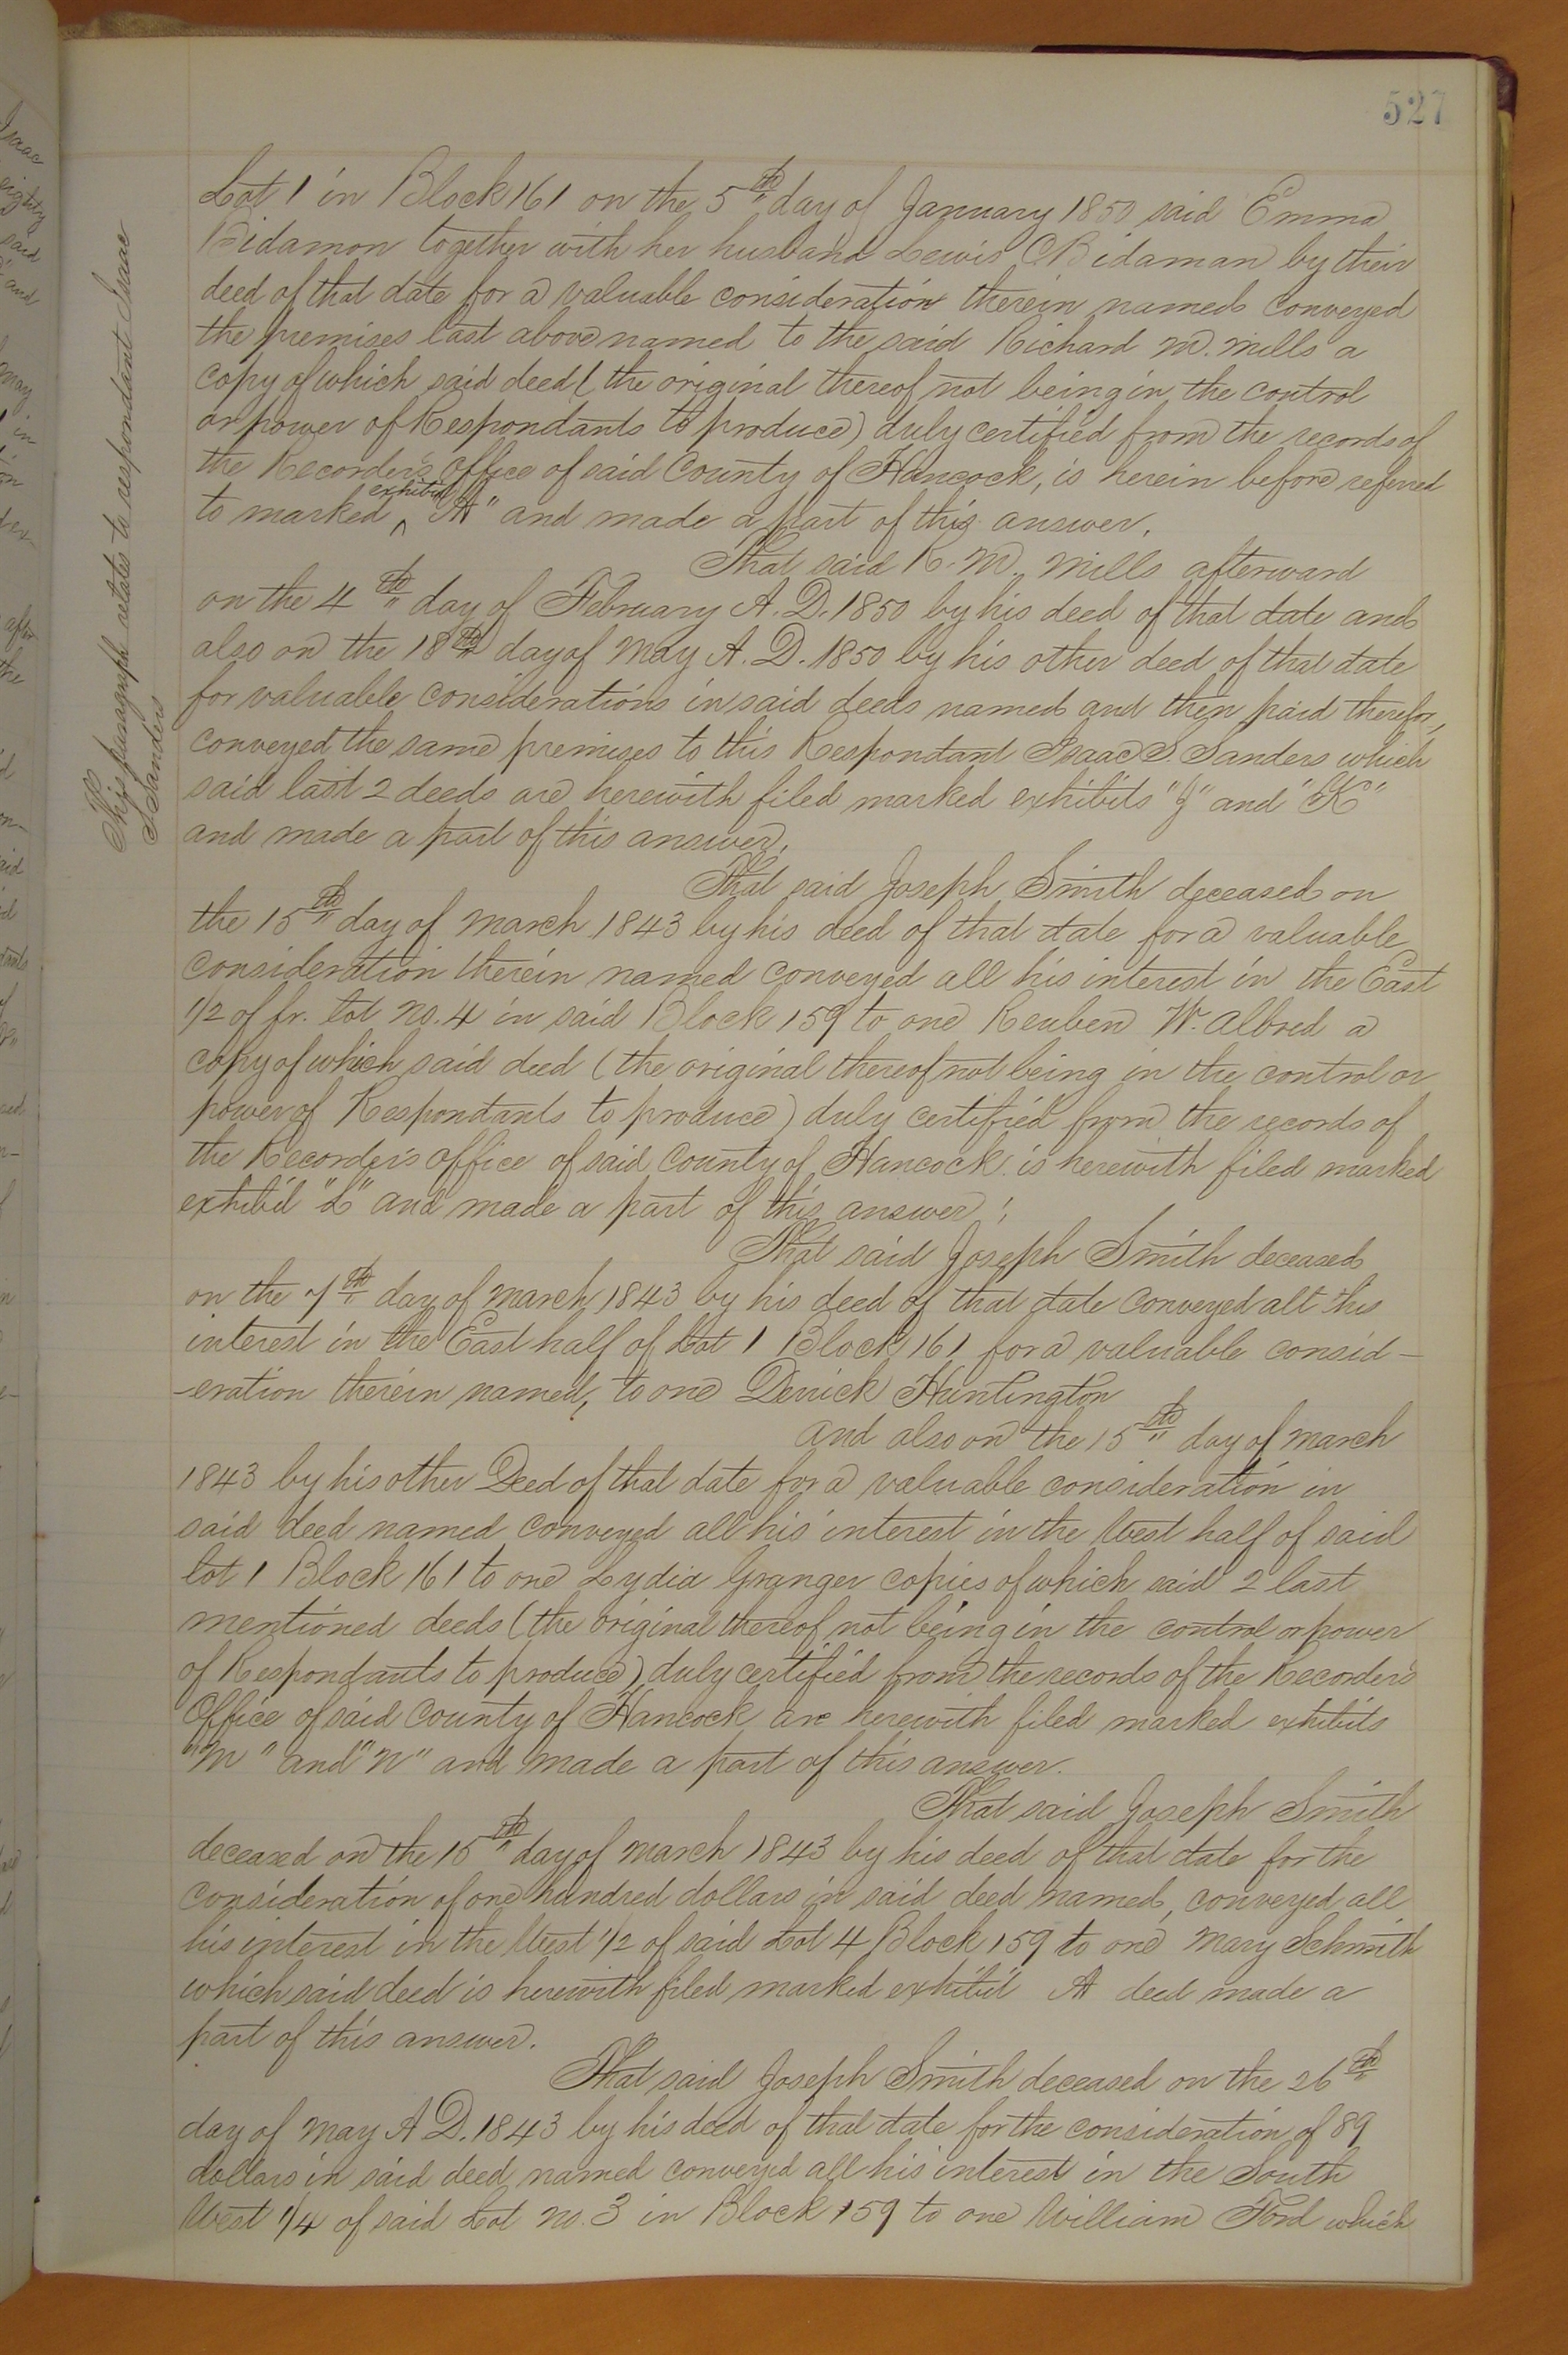 527
Lot 1 in Block 161 on the 5th day of January 1850 said Emma
Bidamon together with her husband Lewis C Bidaman by their
deed of that date for a valuable consideration therein named conveyed
the premises last above named to the said Richard M. Mills a
copy of which said deed ( the original thereof not being in the control
or power of Respondants to produce ) duly certified from the records of
the Recorder's office of said County of Hancock, is herein before referred
to marked ^exhibit "A" and made a part of this answer.
That said R. M. Mills afterward
on the 4th day of February A. D. 1850 by his deed of that date and
also on the 18th day of May A. D. 1850 by his other deed of that date
for valuable considerations in said deeds named and then paid therefor,
conveyed the same premises to this Respondant Isaac S. Sanders which
said last 2 deeds are herewith filed marked exhibits "J" and "K"
and made a part of this answer.
This paragraph relates to respondant Isaac
S Sanders
That said Joseph Smith deceased on
the 15th day of March 1843 by his deed of that date for a valuable
consideration therein named conveyed all his interest in the East
1/2 of fr. lot no. 4 in said Block 159 to one Reuben W. Albred a
copy of which said deed ( the original thereof not being in the control or
power of Respondants to produce ) duly certified from the records of
the Recorder's office of said County of Hancock is herewith filed marked
exhibit "L" and made a part of this answer ;
That said Joseph Smith deceased
on the 7th day of March 1843 by his deed of that date conveyed all his
interest in the East half of Lot 1 Block 161 for a valuable consid-
-eration therein named, to one Derrick Huntington
and also on the 15th day of March
1843 by his other Deed of that date for a valuable consideration in
said deed named conveyed all his interest in the West half of said
lot 1 Block 161 to one Lydia Granger copies of which said 2 last
mentioned deeds ( the original thereof not being in the control or power
of Respondants to produce ) duly certified from the records of the Recorder's
Office of said County of Hancock are herewith filed marked exhibits
"M" and "N" and made a part of this answer.
That said Joseph Smith
deceased on the 15th day of March 1843 by his deed of that date for the
consideration of one hundred dollars in said deed named, conveyed all
his interest in the West 1/2 of said Lot 4 Block 159 to one Mary Schmith
which said deed is herewith filed marked exhibit A deed made a
part of this answer.
That said Joseph Smith deceased on the 26th
day of May A D. 1843 by his deed of that date for the consideration of 89
dollars in said deed named conveyed all his interest in the South
West 1/4 of said Lot no. 3 in Block 159 to one William Ford which